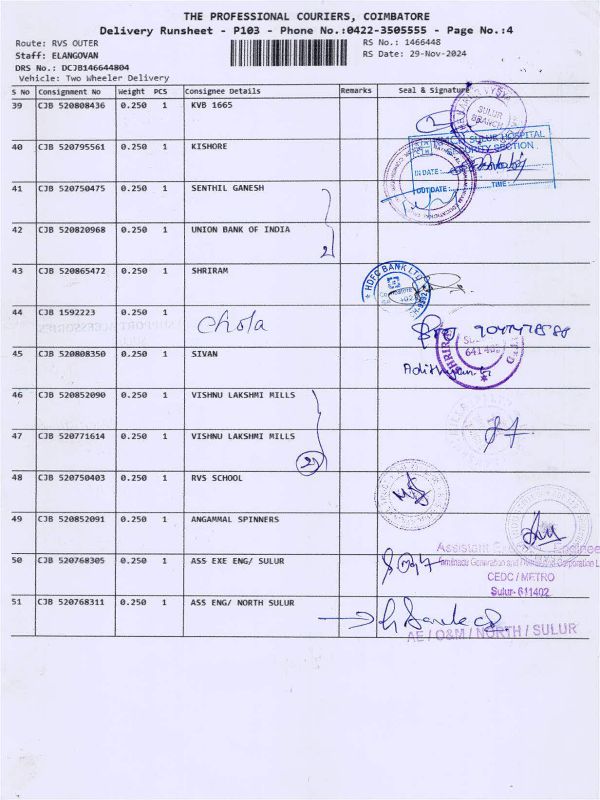 THE PROFESSIONAL COURIERS, COIMBATORE
Delivery Runsheet - P103 - Phone No.:0422-3505555 - Page No.:4
Route: RVS OUTER
RS No.: 1466448
Staff: ELANGOVAN
RS Date: 29-Nov-2024
DRS No.: DCJB146644804
Vehicle: Two Wheeler Delivery
S No Consignment No Weight PCS Consignee Details Remarks Seal & Signature
39 CJB 520808436 0.250 1 KVB 1665
SULUR
BRANCH
40 CJB 520795561 0.250 1 KISHORE
SULUR HOSPITAL
SECTION
IN DATE:
OUT DATE: TIME:
41 CJB 520750475 0.250 1 SENTHIL GANESH
42 CJB 520820968 0.250 1 UNION BANK OF INDIA
2
43 CJB 520865472 0.250 1 SHRIRAM
HDFC BANK LTD
44 CJB 1592223 0.250 1 chola
45 CJB 520808350 0.250 1 SIVAN
46 CJB 520852090 0.250 1 VISHNU LAKSHMI MILLS
47 CJB 520771614 0.250 1 VISHNU LAKSHMI MILLS
2
48 CJB 520750403 0.250 1 RVS SCHOOL
49 CJB 520852091 0.250 1 ANGAMMAL SPINNERS
Assistant Engineer
50 CJB 520768305 0.250 1 ASS EXE ENG/ SULUR
CEDC / METRO
Sulur- 611402
51 CJB 520768311 0.250 1 ASS ENG/ NORTH SULUR
AE / O&M / NORTH / SULUR